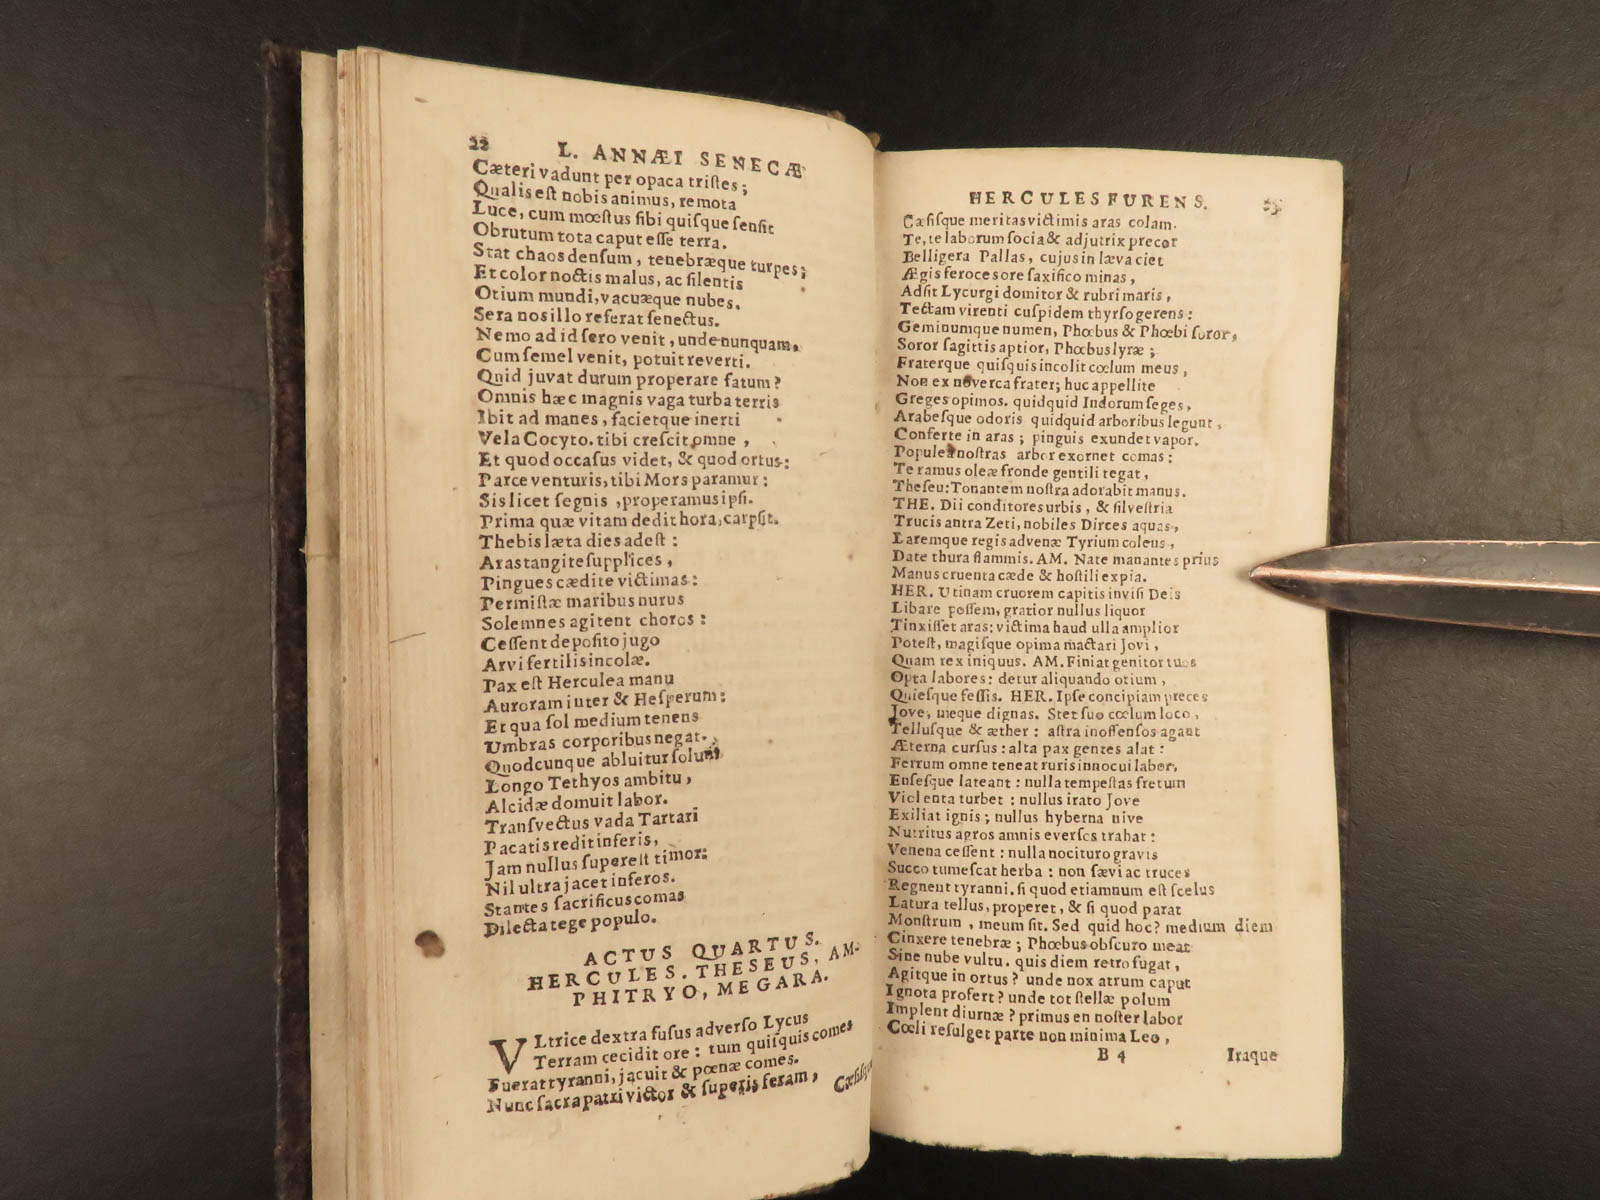 22 L. ANNÆI SENECÆ
Cæteri vadunt per opaca tristes;
Qualis est nobis animus, remota
Luce, cum mœstus sibi quisque sensit
Obrutum tota caput esse terra.
Stat chaos densum, tenebræque turpes;
Et color noctis malus, ac silentis
Otium mundi, vacuæque nubes.
Sera nos illo referat senectus.
Nemo ad id sero venit, unde nunquam,
Cum semel venit, potuit reverti.
Quid juvat durum properare fatum?
Omnis hæc magnis vaga turba terris
Ibit ad manes, facietque inerti
Vela Cocyto. tibi crescit omne,
Et quod occasus videt, & quod ortus:
Parce venturis, tibi Mors paramur:
Sis licet segnis, properamus ipsi.
Prima quæ vitam dedit hora, carpsit.
Thebis læta dies adest:
Aras tangite supplices,
Pingues cædite victimas:
Permistæ maribus nurus
Solemnes agitent choros:
Cessent deposito jugo
Arvi fertilis incolæ.
Pax est Herculea manu
Auroram inter & Hesperum:
Et qua sol medium tenens
Umbras corporibus negat.
Quodcunque abluitur solum
Longo Tethyos ambitu,
Alcidæ domuit labor.
Transvectus vada Tartari
Pacatis redit inferis,
Jam nullus superest timor:
Nil ultra jacet inferos.
Stantes sacrificus comas
Dilecta tege populo.
ACTUS QUARTUS.
HERCULES. THESEUS, AM-
PHITRYO, MEGARA.
VLtrice dextra fusus adverso Lycus
Terram cecidit ore: tum quisquis comes
Fuerat tyranni, jacuit & pœnæ comes.
Nunc sacra patri victor & superis feram,
HERCULES FURENS.
Cæsisque meritas victimis aras colam.
Te, te laborum socia & adjutrix precor
Belligera Pallas, cujus in læva ciet
Ægis feroces ore saxifico minas,
Adsit Lycurgi domitor & rubri maris,
Tectam virenti cuspidem thyrso gerens:
Geminumque numen, Phœbus & Phœbi soror,
Soror sagittis aptior, Phœbus lyræ;
Fraterque quisquis incolit cœlum meus,
Non ex noverca frater; huc appellite
Greges opimos. quidquid Indorum seges,
Arabesque odoris quidquid arboribus legunt,
Conferte in aras; pinguis exundet vapor.
Populea nostras arbor exornet comas:
Te ramus oleæ fronde gentili tegat,
Theseu: Tonantem nostra adorabit manus.
THE. Dii conditores urbis, & silvestria
Trucis antra Zeti, nobiles Dirces aquas,
Laremque regis advenæ Tyrium colens,
Date thura flammis. AM. Nate manantes prius
Manus cruenta cæde & hostili expia.
HER. Utinam cruorem capitis invisi Deis
Libare possem, gratior nullus liquor
Tinxisset aras: victima haud ulla amplior
Potest, magisque opima mactari Jovi,
Quam rex iniquus. AM. Finiat genitor tuos
Opta labores: detur aliquando otium,
Quiesque fessis. HER. Ipse concipiam preces
Jove, meque dignas. Stet suo cœlum loco,
Tellusque & æther: astra inoffensos agant
Æterna cursus: alta pax gentes alat:
Ferrum omne teneat ruris innocui labor,
Ensesque lateant: nulla tempestas fretum
Violenta turbet: nullus irato Jove
Exiliat ignis; nullus hyberna nive
Nutritus agros amnis eversos trahat:
Venena cessent: nulla nocituro gravis
Succo tumescat herba: non sævi ac truces
Regnent tyranni. si quod etiamnum est scelus
Latura tellus, properet, & si quod parat
Monstrum, meum sit. Sed quid hoc? medium diem
Cinxere tenebræ; Phœbus obscuro meat
Sine nube vultu. quis diem retro fugat,
Agitque in ortus? unde nox atrum caput
Ignota profert? unde tot stellæ polum
Implent diurnæ? primus en noster labor
Cœli refulget parte non minima Leo,
B 4 Iraque